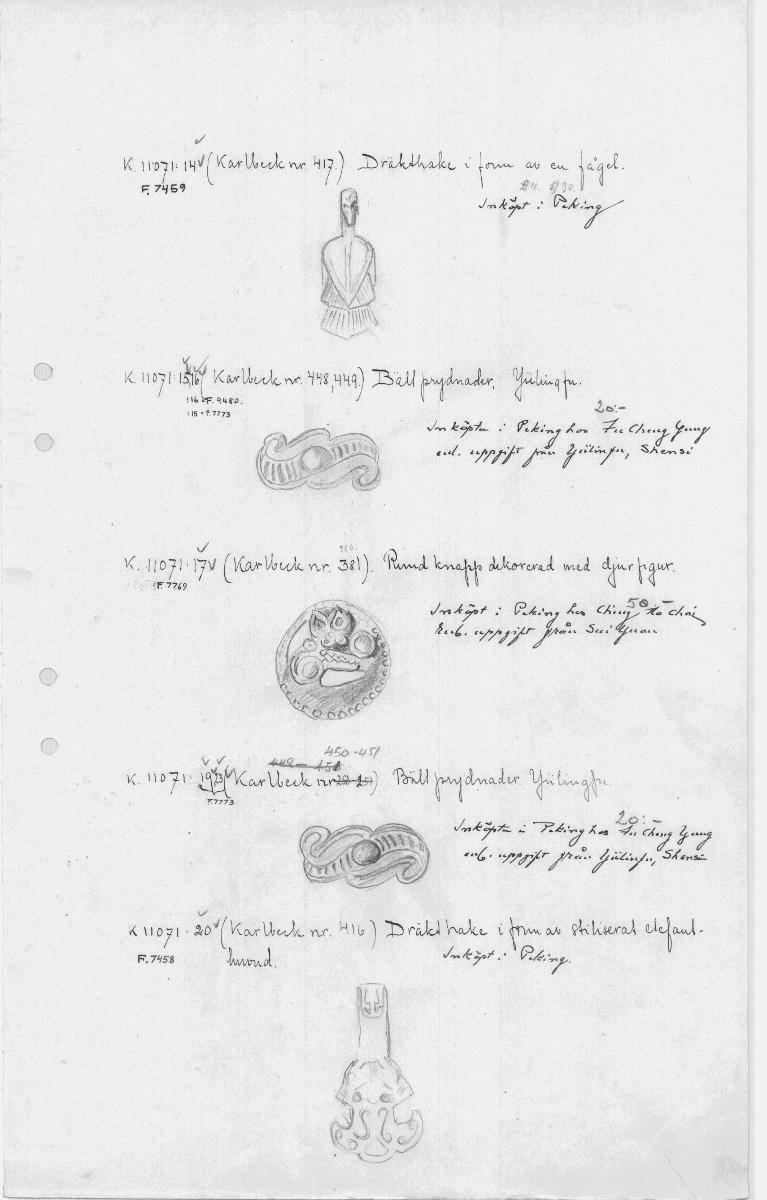 K. 11071:14 (Karlbeck nr. 417.) Dräkthake i form av en fågel.
F. 7459
Inköpt i Peking
K. 11071:15,16 (Karlbeck nr. 448,449) Bältprydnader, Yülingfu.
:16 = F. 9480.
:15 = F. 7773
20:-
Inköpta i Peking hos Fu Cheng Yung
enl. uppgift från Yülinfu, Shensi
K. 11071:17 (Karlbeck nr. 381). Rund knapp dekorerad med djurfigur.
F. 7769
50 -
Inköpt i Peking hos Ching Ho Chai
Enl. uppgift från Sui Yuan
450-451
449-450
K. 11071: 19, 23 (Karlbeck nr.) Bältprydnader. Yülingfu.
F. 7773
20:-
Inköpta i Peking hos Fu Cheng Yung
enl. uppgift från Yülinfu, Shensi
K 11071:20 (Karlbeck nr. 416) Dräkthake i form av stiliserat elefant-
F. 7458 huvud.
Inköpt i Peking.